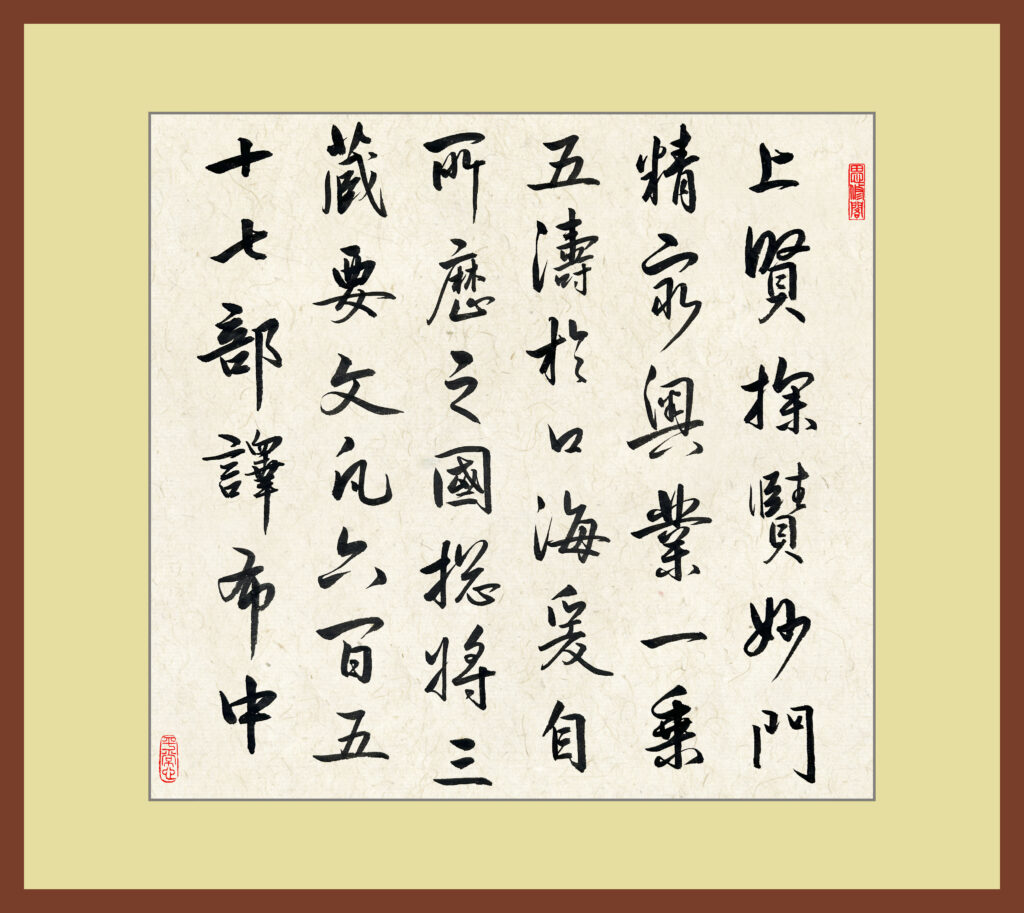 思修閣
上賢探賾妙門
精窮奧業一乘
五濤於口海爰自
所歷之國揔將三
藏要文凡六百五
十七部譯布中